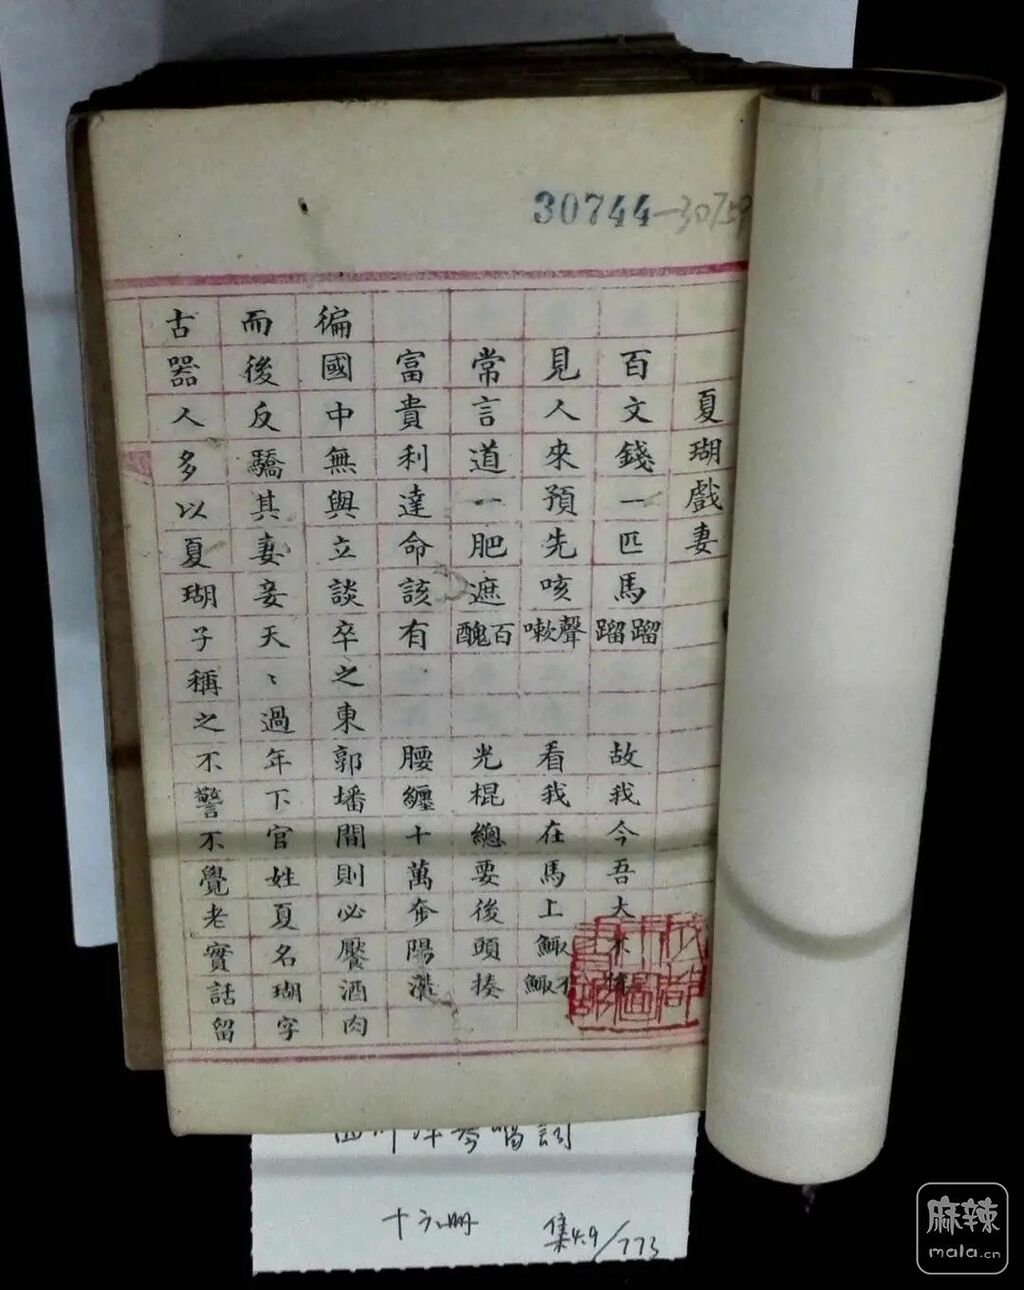 30744-30759
夏瑚戲妻
百文錢一匹馬蹓蹓 故我今吾大不
見人來預先咳嗽聲 看我在馬上䱓䱓不
常言道一肥遮百醜 光棍總要後頭揍
富貴利達命該有 腰纏十萬奔陽
徧國中無與立談卒之東郭墦間則必饜酒肉
而後反驕其妻妾天〻過年下官姓夏名瑚字
古器人多以夏瑚子稱之不警不覺老實話留
四川洋琴唱詞
十六冊
集4.9/773
麻辣
mala.cn